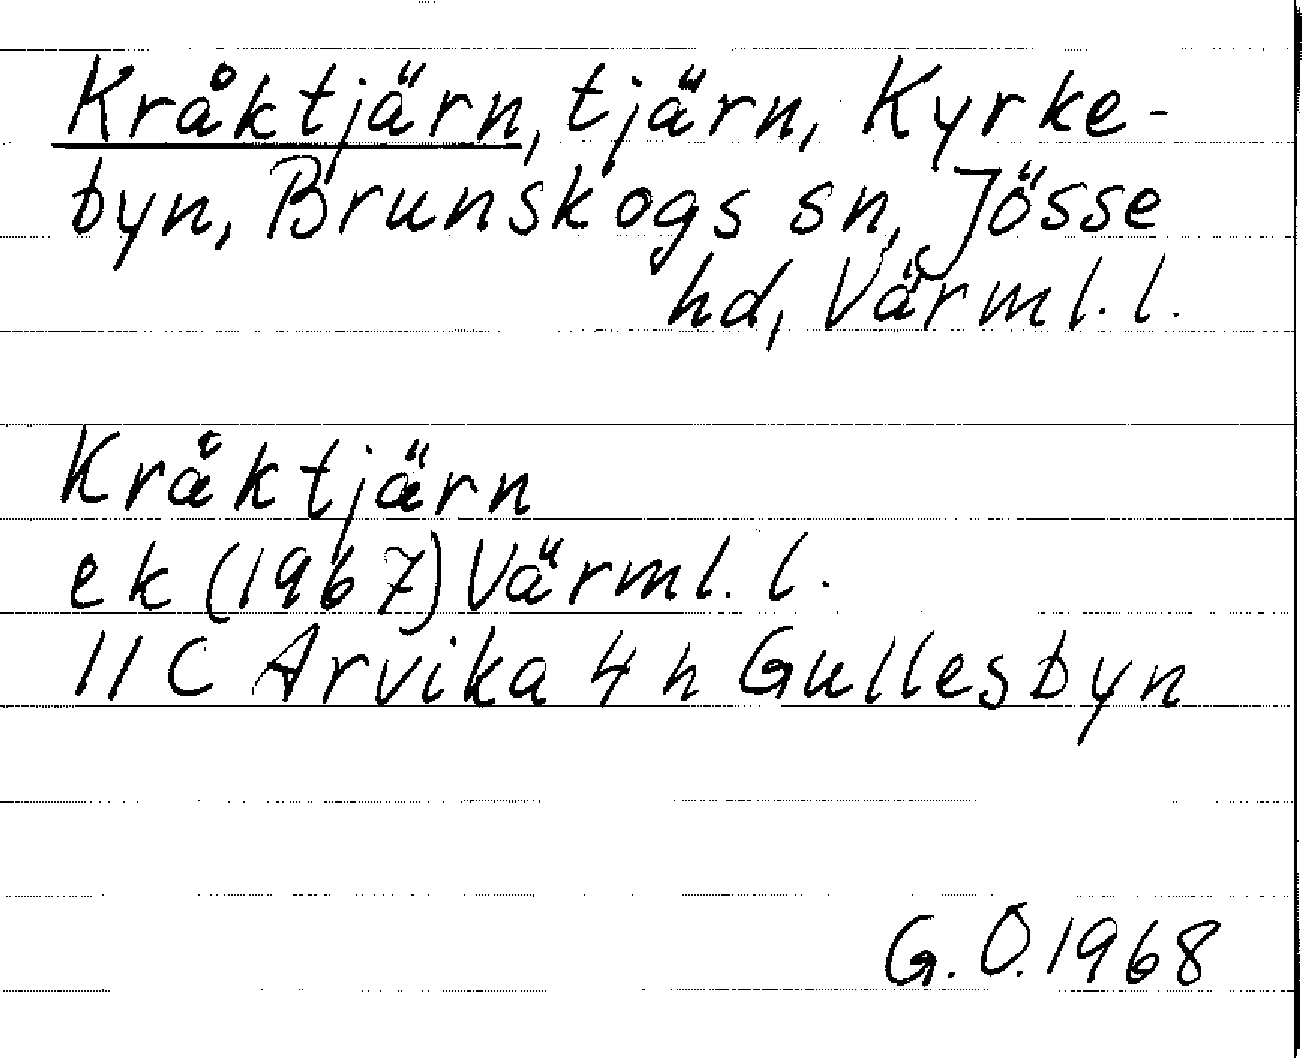 Kråktjärn, tjärn, Kyrke-
byn, Brunskogs sn, Jösse
hd, Värml. l.
Kråktjärn
ek (1967) Värml. l.
11 C Arvika 4 h Gullesbyn
G. O. 1968